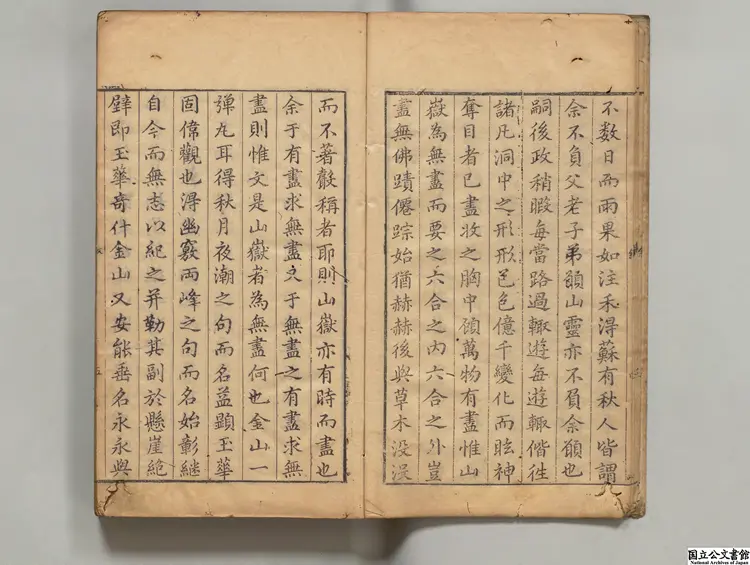 不数日而雨果如注禾得蘇有秋人皆謂
余不負父老子弟願山靈亦不負余願也
嗣後政稍暇每當路過輙遊每遊輙偕徃
諸凡洞中之形形色色億千變化而眩神
奪目者已盡收之胸中顧萬物有盡惟山
嶽為無盡而要之六合之内六合之外豈
盡無佛蹟僊踪始猶赫赫後與草木没没
而不著㲈稱者耶則山嶽亦有時而盡也
余于有盡求無盡又于無盡之有盡求無
盡則惟文是山嶽者為無盡何也金山一
弾丸耳得秋月夜潮之句而名益顕玉華
固偉觀也得幽竅兩峰之句而名始彰継
自今而無志以紀之并勒其副於懸崖絶
壁即玉華奇什金山又安能垂名永永與
国立公文書館
National Archives of Japan